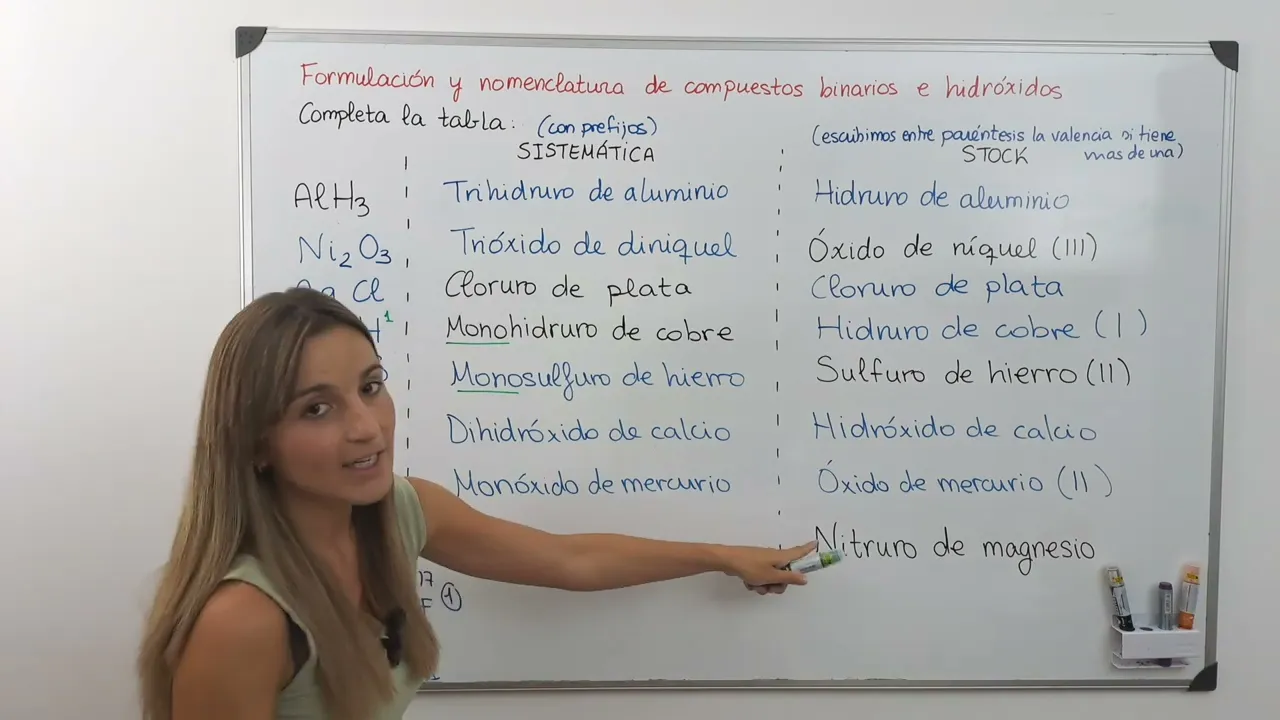 Formulación y nomenclatura de compuestos binarios e hidróxidos
Completa la tabla: (con prefijos) (escribimos entre paréntesis la valencia si tiene
SISTEMÁTICA STOCK mas de una)
AlH3 Trihidruro de aluminio Hidruro de aluminio
Ni2O3 Trióxido de diniquel Óxido de níquel (III)
Ag Cl Cloruro de plata Cloruro de plata
H 1 Monohidruro de cobre Hidruro de cobre (I)
Monosulfuro de hierro Sulfuro de hierro (II)
Dihidróxido de calcio Hidróxido de calcio
Monóxido de mercurio Óxido de mercurio (II)
Nitruro de magnesio
17
F 1